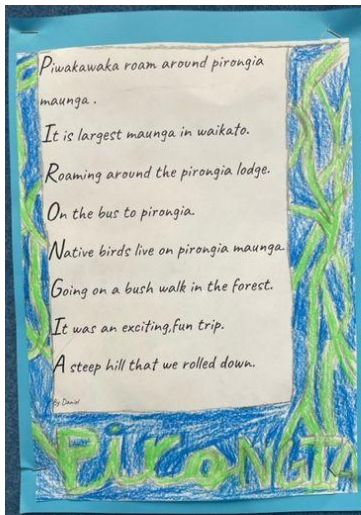 Piwakawaka roam around pirongia
maunga .
It is largest maunga in waikato.
Roaming around the pirongia lodge.
On the bus to pirongia.
Native birds live on pirongia maunga.
Going on a bush walk in the forest.
It was an exciting,fun trip.
A steep hill that we rolled down.
By Daniel
PiroNGIA